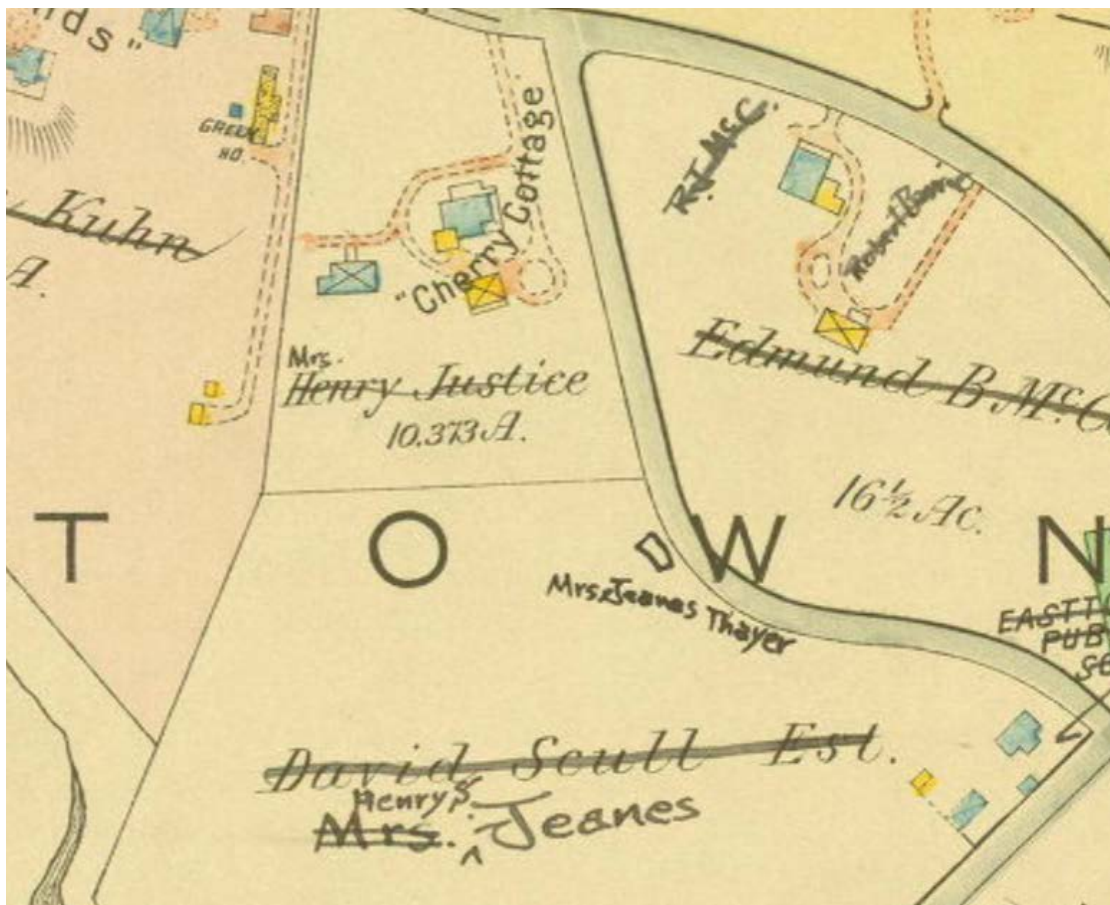 nds"
GREEN
HO.
Kuhn
A.
"Cherry Cottage"
Mrs.
Henry Justice
10.373 A.
R.T. McC.
Edmund B. McC
16½ Ac.
T O W N
Mrs. Jeanes Thayer
EASTT
PUB
SC
David Scull Est.
Henry S.
Mrs. ^ Jeanes